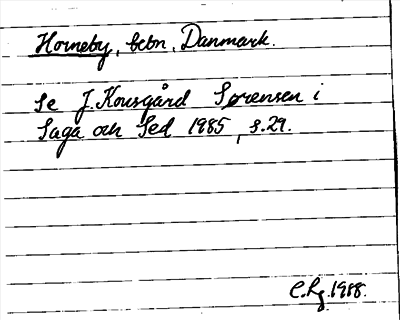 Horneby, bebn, Danmark.
Se J. Kousgård Sørensen i
Saga och Sed 1985, s.29.
C.Lg. 1988.